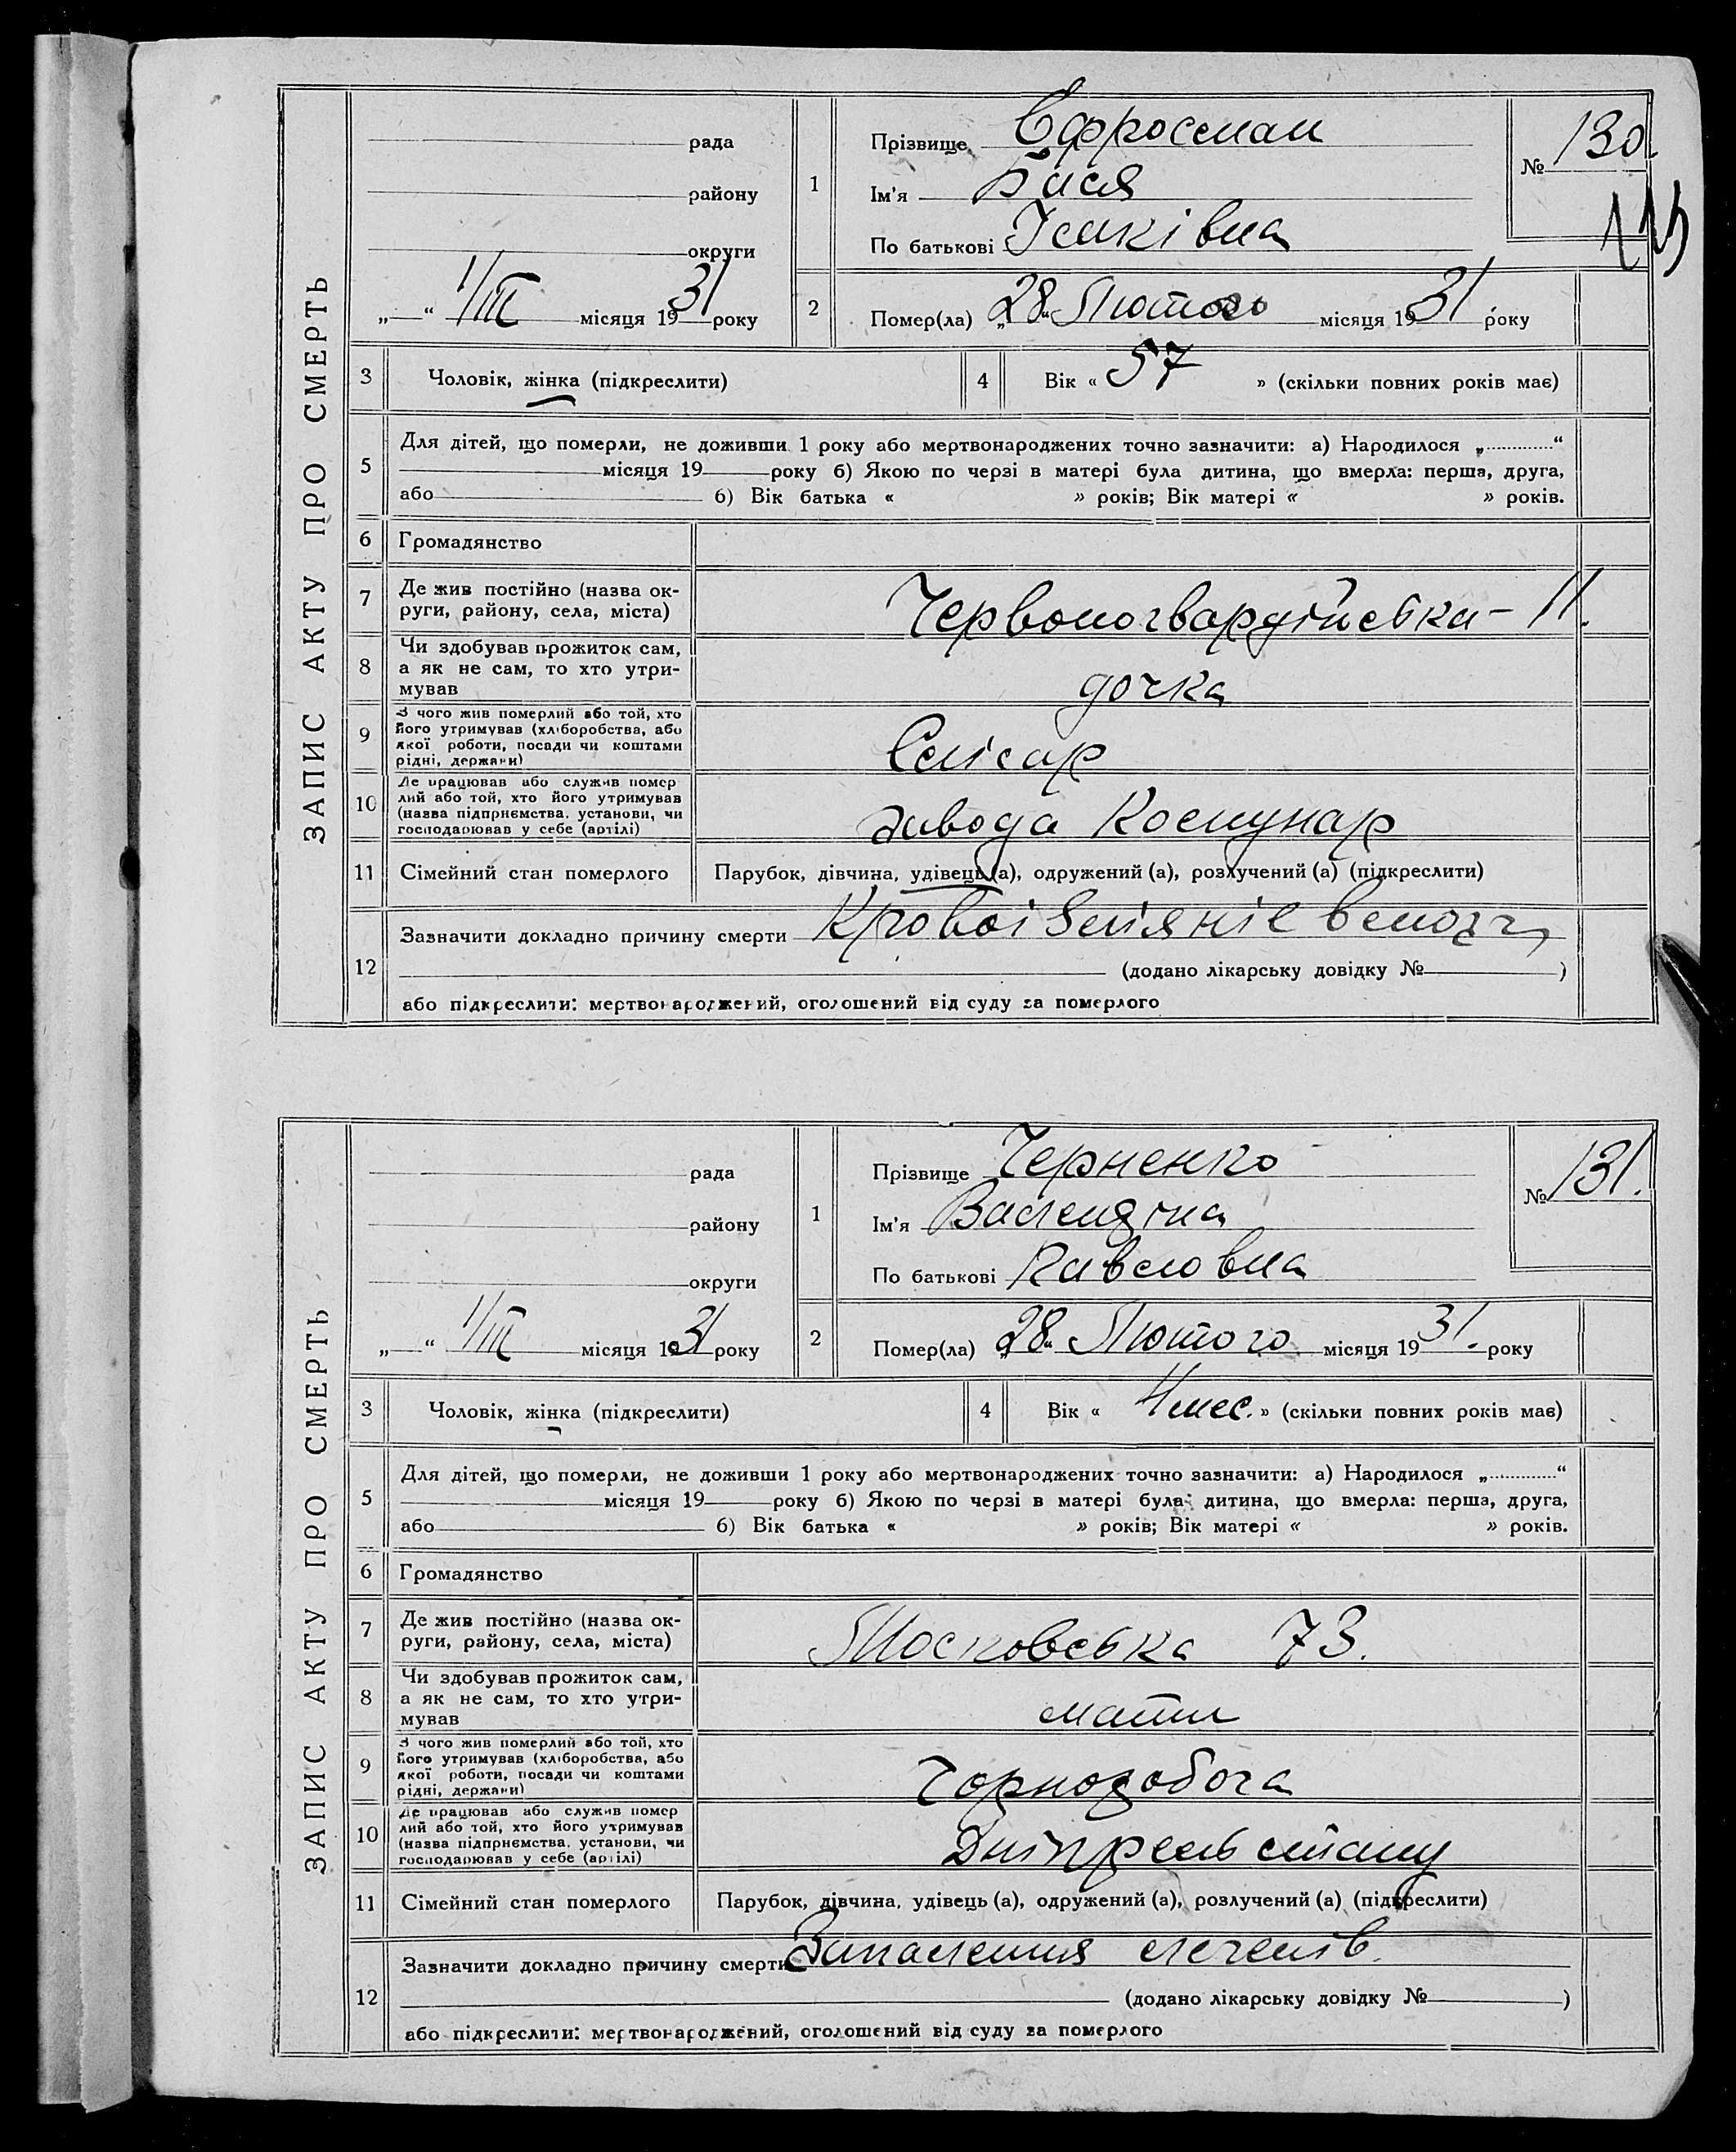 ЗАПИС АКТУ ПРО СМЕРТЬ
рада
району
округи
„—“ 1/III місяця 1931 року
1
Прізвище Єфросман
Ім'я Бася
По батькові Ісаківна
№ 130.
2
Помер(ла) „28“ Лютого місяця 1931 року
3 Чоловік, жінка (підкреслити)
4 Вік « 57 » (скільки повних років має)
5
Для дітей, що померли, не доживши 1 року або мертвонароджених точно зазначити: а) Народилося „..........“
місяця 19 року б) Якою по черзі в матері була дитина, що вмерла: перша, друга,
або б) Вік батька « » років; Вік матері « » років.
6 Громадянство
7 Де жив постійно (назва ок-
руги, району, села, міста)
Червоногвардійська – 11.
8 Чи здобував прожиток сам,
а як не сам, то хто утри-
мував
дочка
9 З чого жив померлий або той, хто
його утримував (хліборобства, або
якої роботи, посади чи коштами
рідні, держави)
Слісар
10 Де працював або служив помер
лий або той, хто його утримував
(назва підприємства, установи, чи
господарював у себе (артілі)
завода Комунар
11 Сімейний стан померлого
Парубок, дівчина, удівець (а), одружений (а), розлучений (а) (підкреслити)
12
Зазначити докладно причину смерти Кровоізліяніє в мозг
(додано лікарську довідку № )
або підкреслити: мертвонароджений, оголошений від суду за померлого
ЗАПИС АКТУ ПРО СМЕРТЬ
рада
району
округи
„—“ 1/III місяця 1931 року
1
Прізвище Черненко
Ім'я Валендіна
По батькові Павловна
№ 131.
2
Помер(ла) „28“ Лютого місяця 1931. року
3 Чоловік, жінка (підкреслити)
4 Вік « 4 мес. » (скільки повних років має)
5
Для дітей, що померли, не доживши 1 року або мертвонароджених точно зазначити: а) Народилося „..........“
місяця 19 року б) Якою по черзі в матері була дитина, що вмерла: перша, друга,
або б) Вік батька « » років; Вік матері « » років.
6 Громадянство
7 Де жив постійно (назва ок-
руги, району, села, міста)
Московська 73.
8 Чи здобував прожиток сам,
а як не сам, то хто утри-
мував
мати
9 З чого жив померлий або той, хто
його утримував (хліборобства, або
якої роботи, посади чи коштами
рідні, держави)
Чорноробоча
10 Де працював або служив помер
лий або той, хто його утримував
(назва підприємства, установи, чи
господарював у себе (артілі)
Дніпрельстану
11 Сімейний стан померлого
Парубок, дівчина, удівець (а), одружений (а), розлучений (а) (підкреслити)
12
Зазначити докладно причину смерти Запалення легенів.
(додано лікарську довідку № )
або підкреслити: мертвонароджений, оголошений від суду за померлого